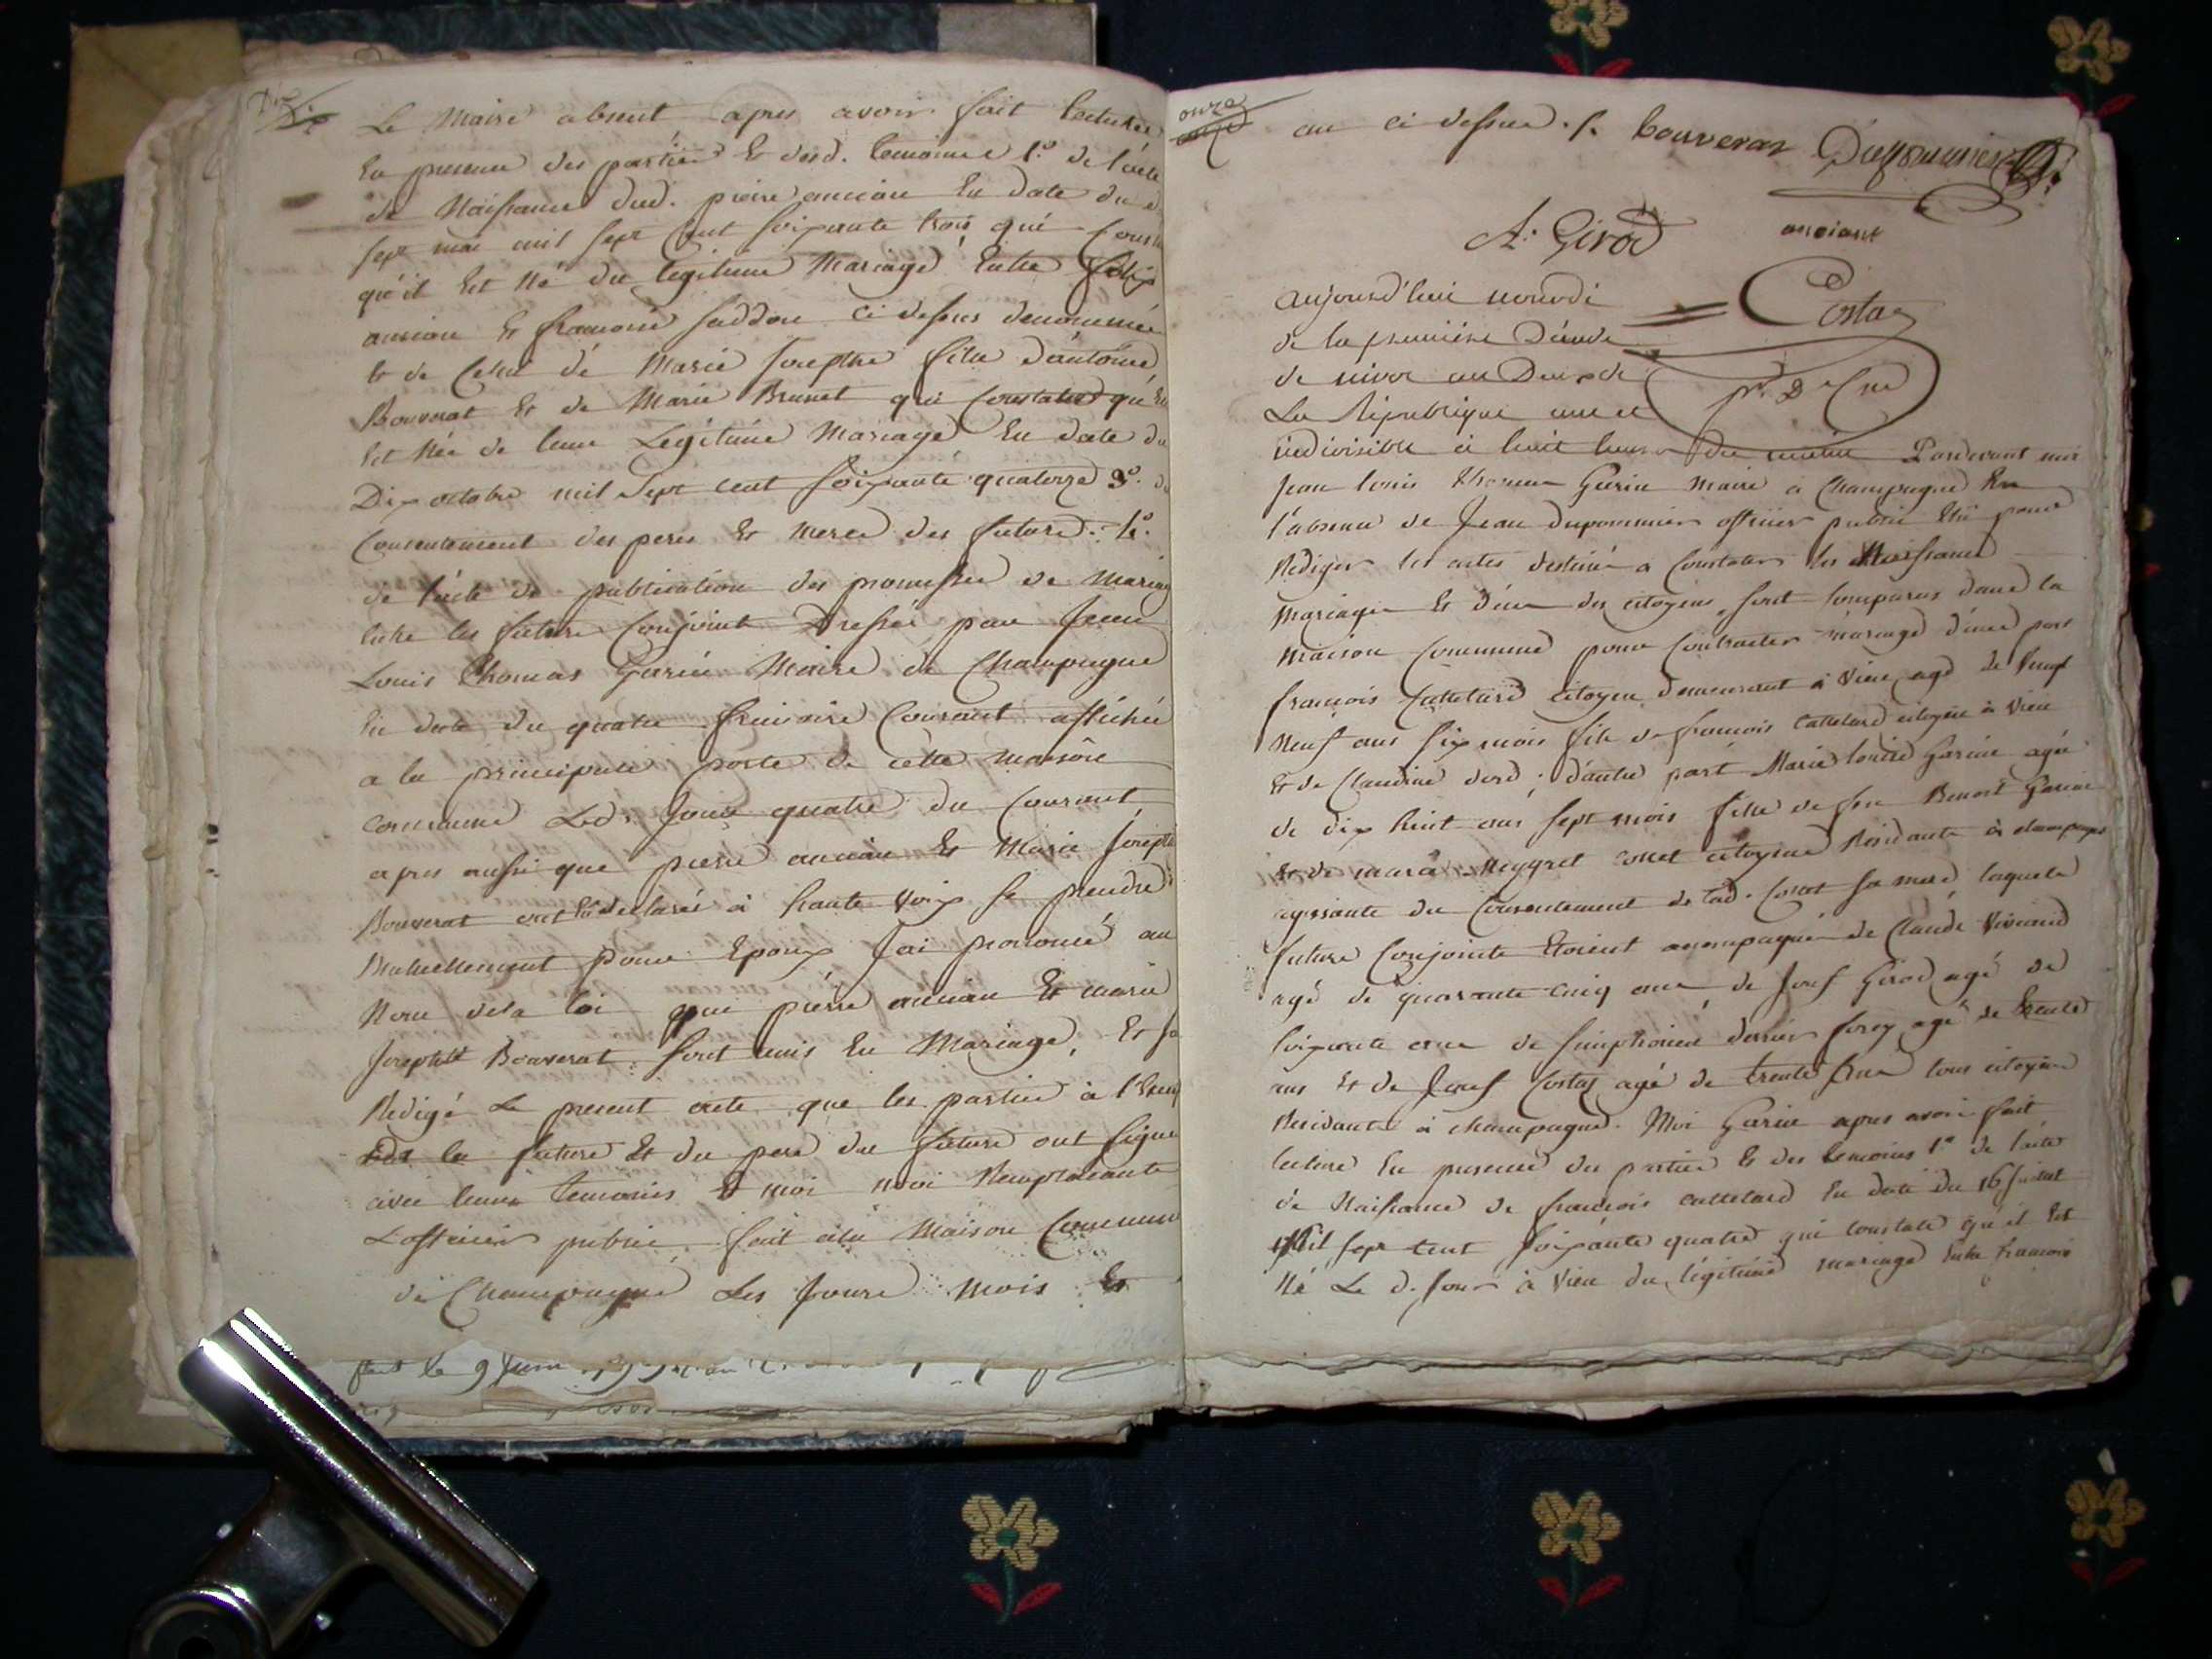 Le Maire absent apres avoir fait lecture
En presence des parties & desd. temoins 1.° de l'acte
de Naissance dud. pierre ancian En date du
sept mai mil sept cent soixante trois qui
qu'il Est Né du legitime Mariage Entre
ancian & francoise faddon ci dessus denommée
& de Celui de Marie Josephte fille d'antoine
Bouverat & de Marie Brunet qui Constate qu'
Est Née de leur Legitime Mariage En date du
Dix octobre mil Sept cent soixante quatorze 3.°
Consentement des peres & meres des futurs
de l'acte de publication des promesses de Mariage
Entre les futurs Conjoints Dressée par Jean
Louis Thomas Garin Maire de Champagne
En date du quatre frimaire Courant affichée
a la principale porte de cette maison
commune Led. Jour quatre du Courant
apres aussi que pierre ancian & Marie Josephte
Bouverat ont declaré à haute voix se prendre
Mutuellement pour Epoux J'ai prononcé au
Nom de la loi que pierre ancian & marie
Josephte Bouverat sont unis En Mariage, Et
Redigé Le present acte que les parties à
la future & du pere du future ont signé
avec leurs temoins & moi Remplacante
L'officier public fait à la Maison Commune
de Champagne Les Jours Mois &
fait le 9 Juin
onze
an ci dessus. f. bouverat Dupommier
A. Girod
anciant
Costaz
aujourd'hui nonodi
de la premiere Decade
de nivos an Deux de
La Republique une et
indivisible à huit heures du matin Pardevant moi
Jean louis thomas Garin maire à Champagne En
l'absence de Jean dupommier officier public Elu pour
Rediger les actes destinés a Constater les Naissances
Mariages & Décès des citoyens sont comparus dans la
maison Commune pour Contracter mariage d'une part
francois Cattelard citoyen demeurant à Vieu agé de Vingt
Neuf ans six mois fils de francois Cattelard citoyen à Vieu
& de Claudine ; d'autre part Marie louise Garin agée
de dix huit ans sept mois fille de feu Benoit Garin
citoyenne Residante à champagne
agissante du Consentement de lad. sa mere, laquels
futurs Conjoints Etoient accompagnés de Claude Viviand
agé de quarante cinq ans de Josef Girod agé de
soixante ans de simphorien agé de trente
ans & de Josef Costaz agé de trente ans tous citoyens
Residants à champagne. Moi Garin apres avoir fait
lecture En presence des parties & des temoins 1.° de l'acte
de Naissance de francois cattelard En date du 16 Juillet
mil sept cent soixante quatre qui constate qu'il Est
Né Le d. Jour à Vieu du légitime mariage Entre francois